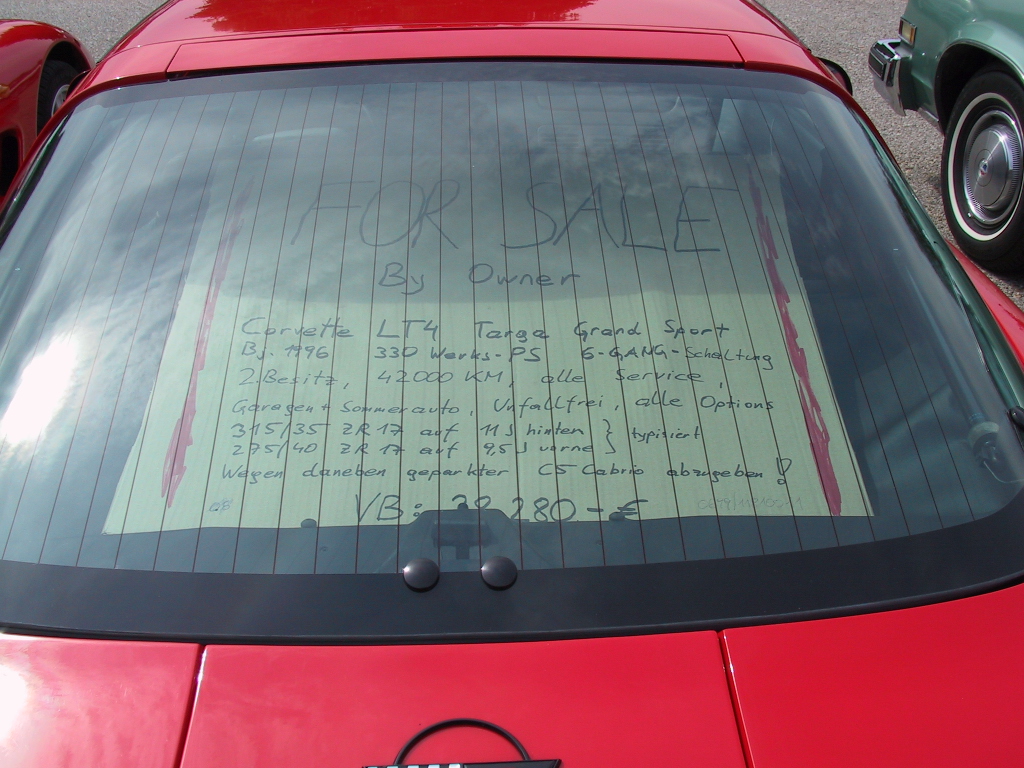 FOR SALE
By Owner
Corvette LT4 Targa Grand Sport
Bj. 1996 330 Werks-PS 6-GANG-Schaltung
2.Besitz, 42000 KM, alle Service,
Garagen + Sommerauto, Unfallfrei, alle Options
315/35 ZR 17 auf 11J hinten } typisiert
275/40 ZR 17 auf 9,5J vorne
Wegen daneben geparkter C5 Cabrio abzugeben !
VB: 280 -€